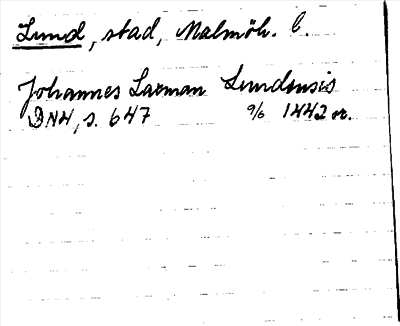 Lund, stad, Malmöh. l.
Johannes Laxman Lundensis
DN4, s. 647 % 1442 or.